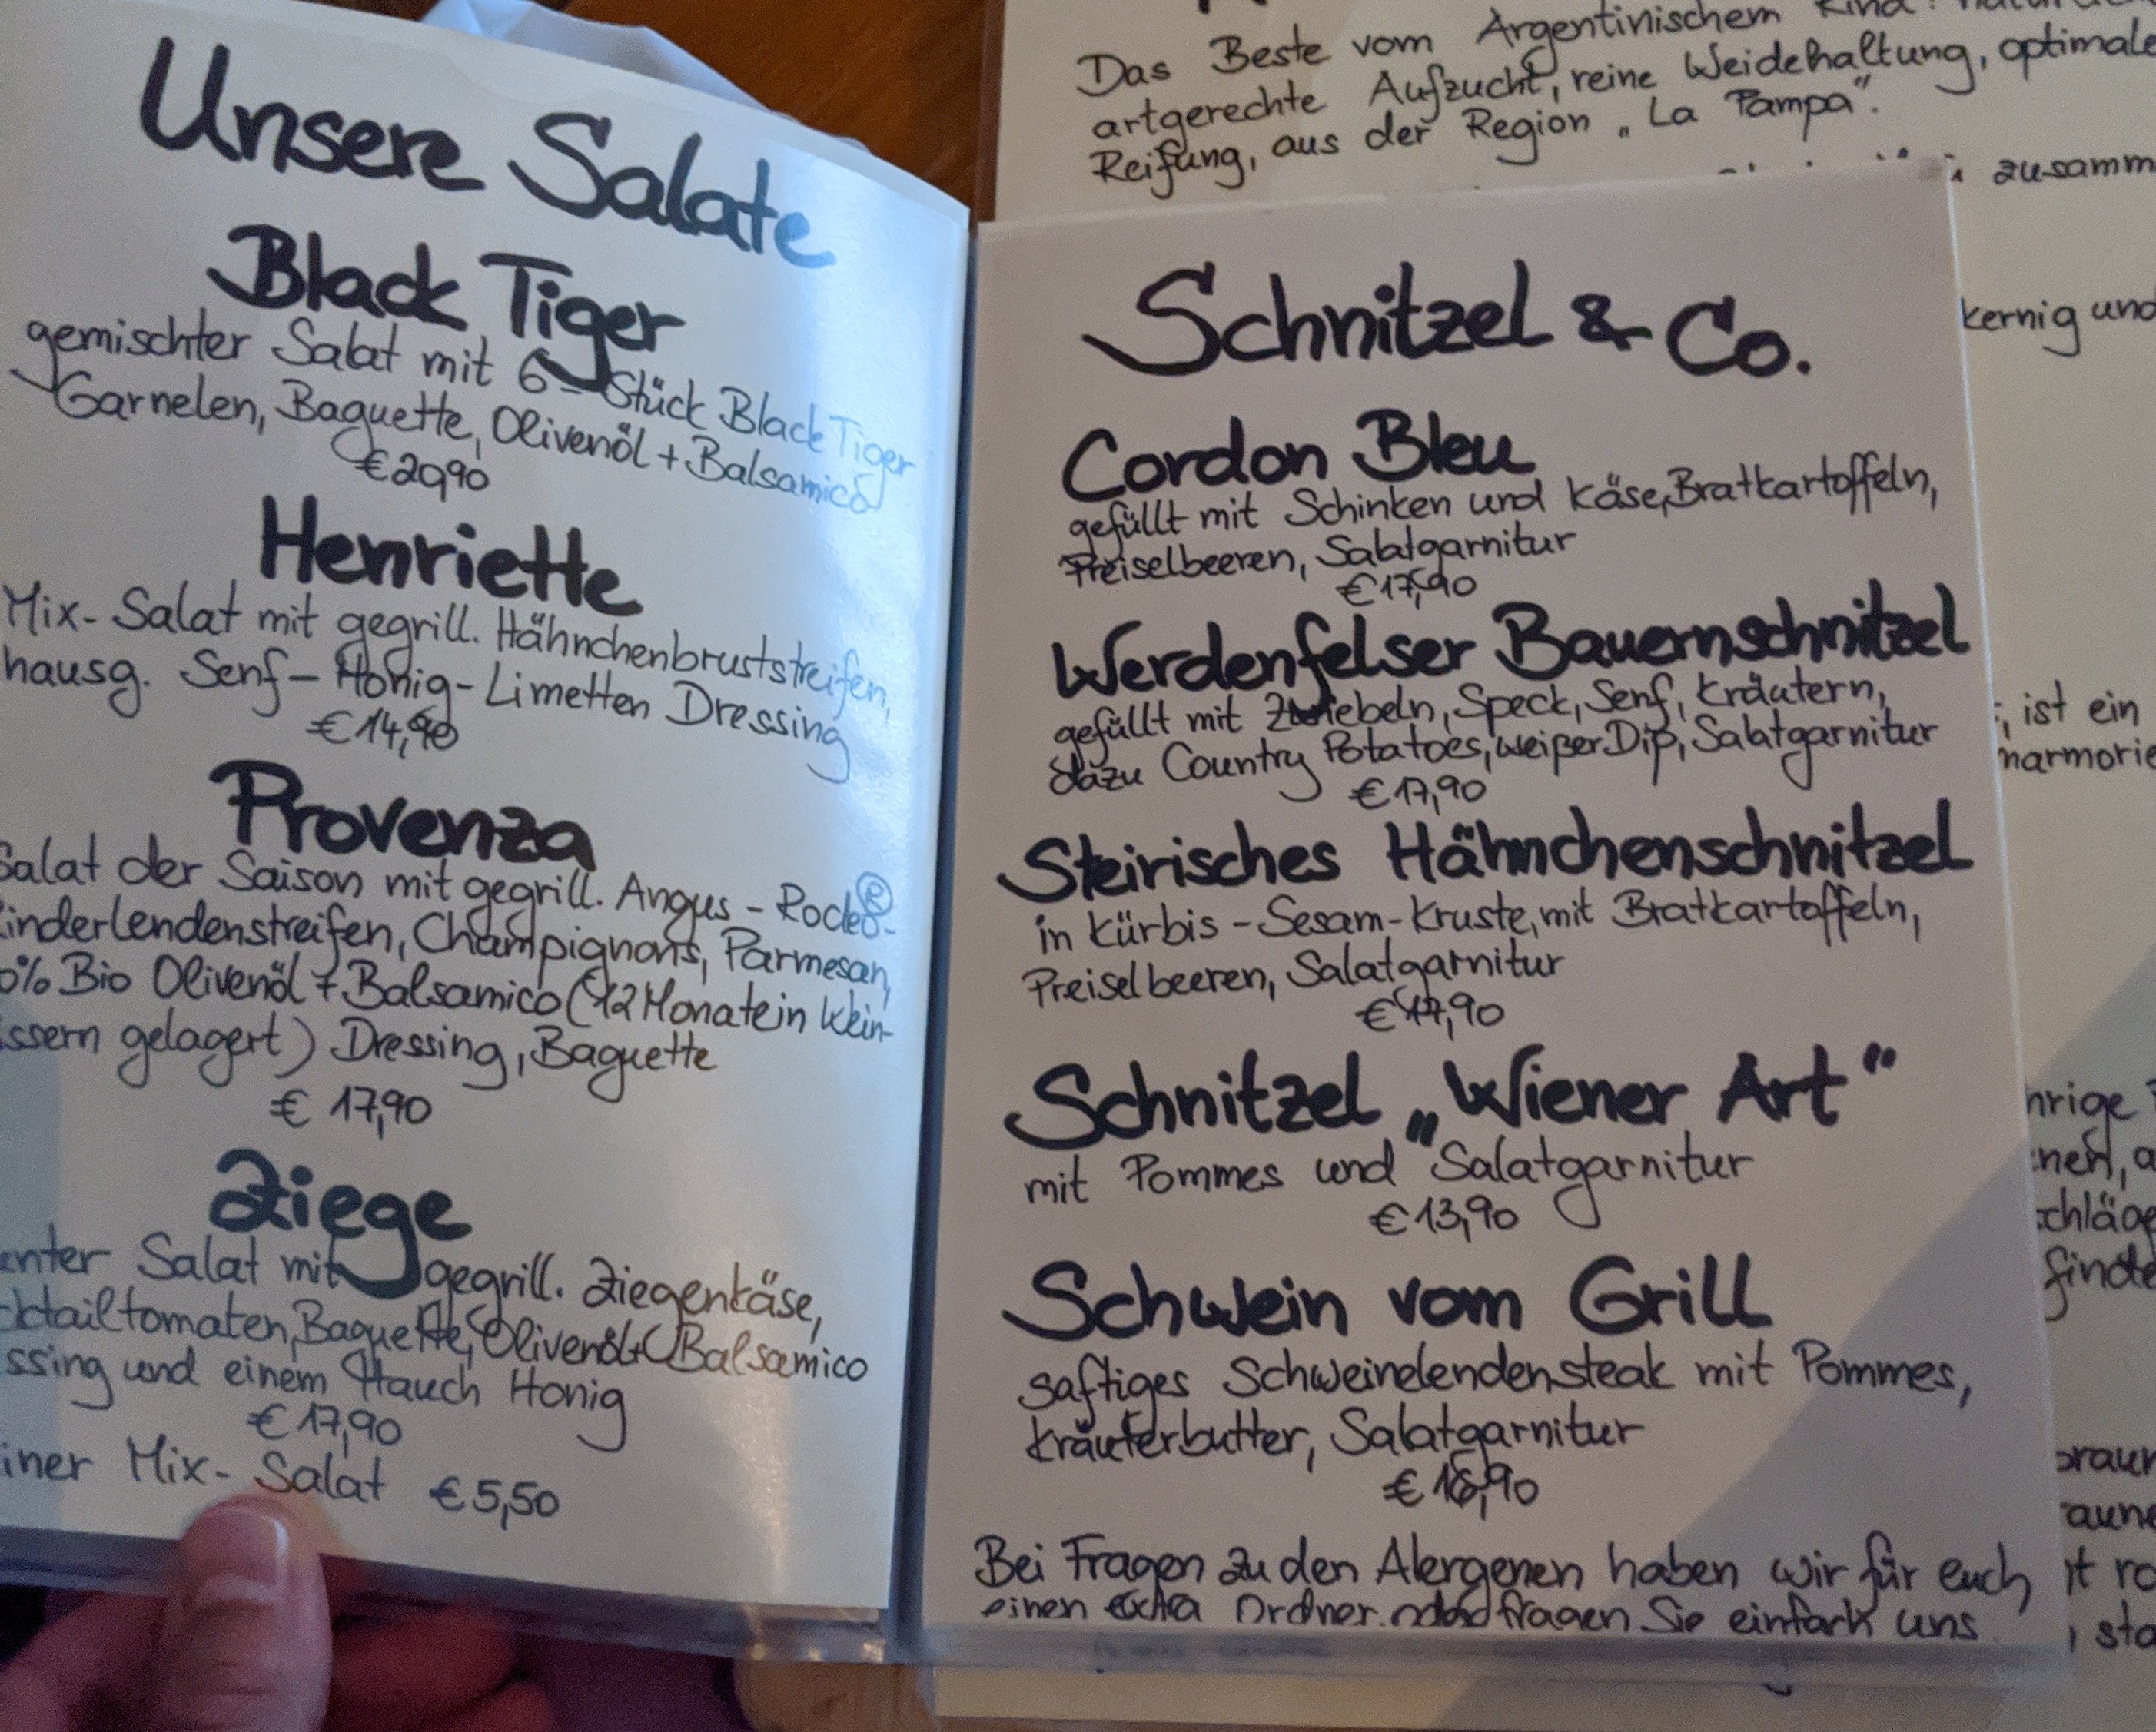 Unsere Salate
Black Tiger
gemischter Salat mit 6-Stück Black Tiger
Garnelen, Baguette, Olivenöl + Balsamico
€ 20,90
Henriette
Mix-Salat mit gegrill. Hähnchenbruststreifen,
hausg. Senf-Honig-Limetten Dressing
€ 14,90
Provenza
Salat der Saison mit gegrill. Angus-Rodeo®-
inderlendenstreifen, Champignons, Parmesan,
0% Bio Olivenöl + Balsamico (12 Monate in Wein-
ssern gelagert) Dressing, Baguette
€ 17,90
Ziege
unter Salat mit gegrill. Ziegenkäse,
cktailtomaten, Baguette, Olivenöl + Balsamico
ssing und einem Hauch Honig
€ 17,90
iner Mix-Salat € 5,50
Das Beste vom Argentinischem Rind
artgerechte Aufzucht, reine Weidehaltung, optimale
Reifung, aus der Region „La Pampa".
zusamm
kernig und
Schnitzel & Co.
Cordon Bleu
gefüllt mit Schinken und Käse, Bratkartoffeln,
Preiselbeeren, Salatgarnitur
€ 17,90
Werdenfelser Bauernschnitzel
gefüllt mit Zwiebeln, Speck, Senf, Kräutern,
dazu Country Potatoes, weißer Dip, Salatgarnitur
€ 17,90
Steirisches Hähnchenschnitzel
in Kürbis-Sesam-Kruste, mit Bratkartoffeln,
Preiselbeeren, Salatgarnitur
€ 17,90
Schnitzel „Wiener Art"
mit Pommes und Salatgarnitur
€ 13,90
Schwein vom Grill
saftiges Schweinelendensteak mit Pommes,
Kräuterbutter, Salatgarnitur
€ 16,90
Bei Fragen zu den Alergenen haben wir für euch
einen extra Ordner. oder fragen Sie einfach uns.
, ist ein
marmorie
hrige
nen, a
chläge
finde
braun
aune
t ro
, sta